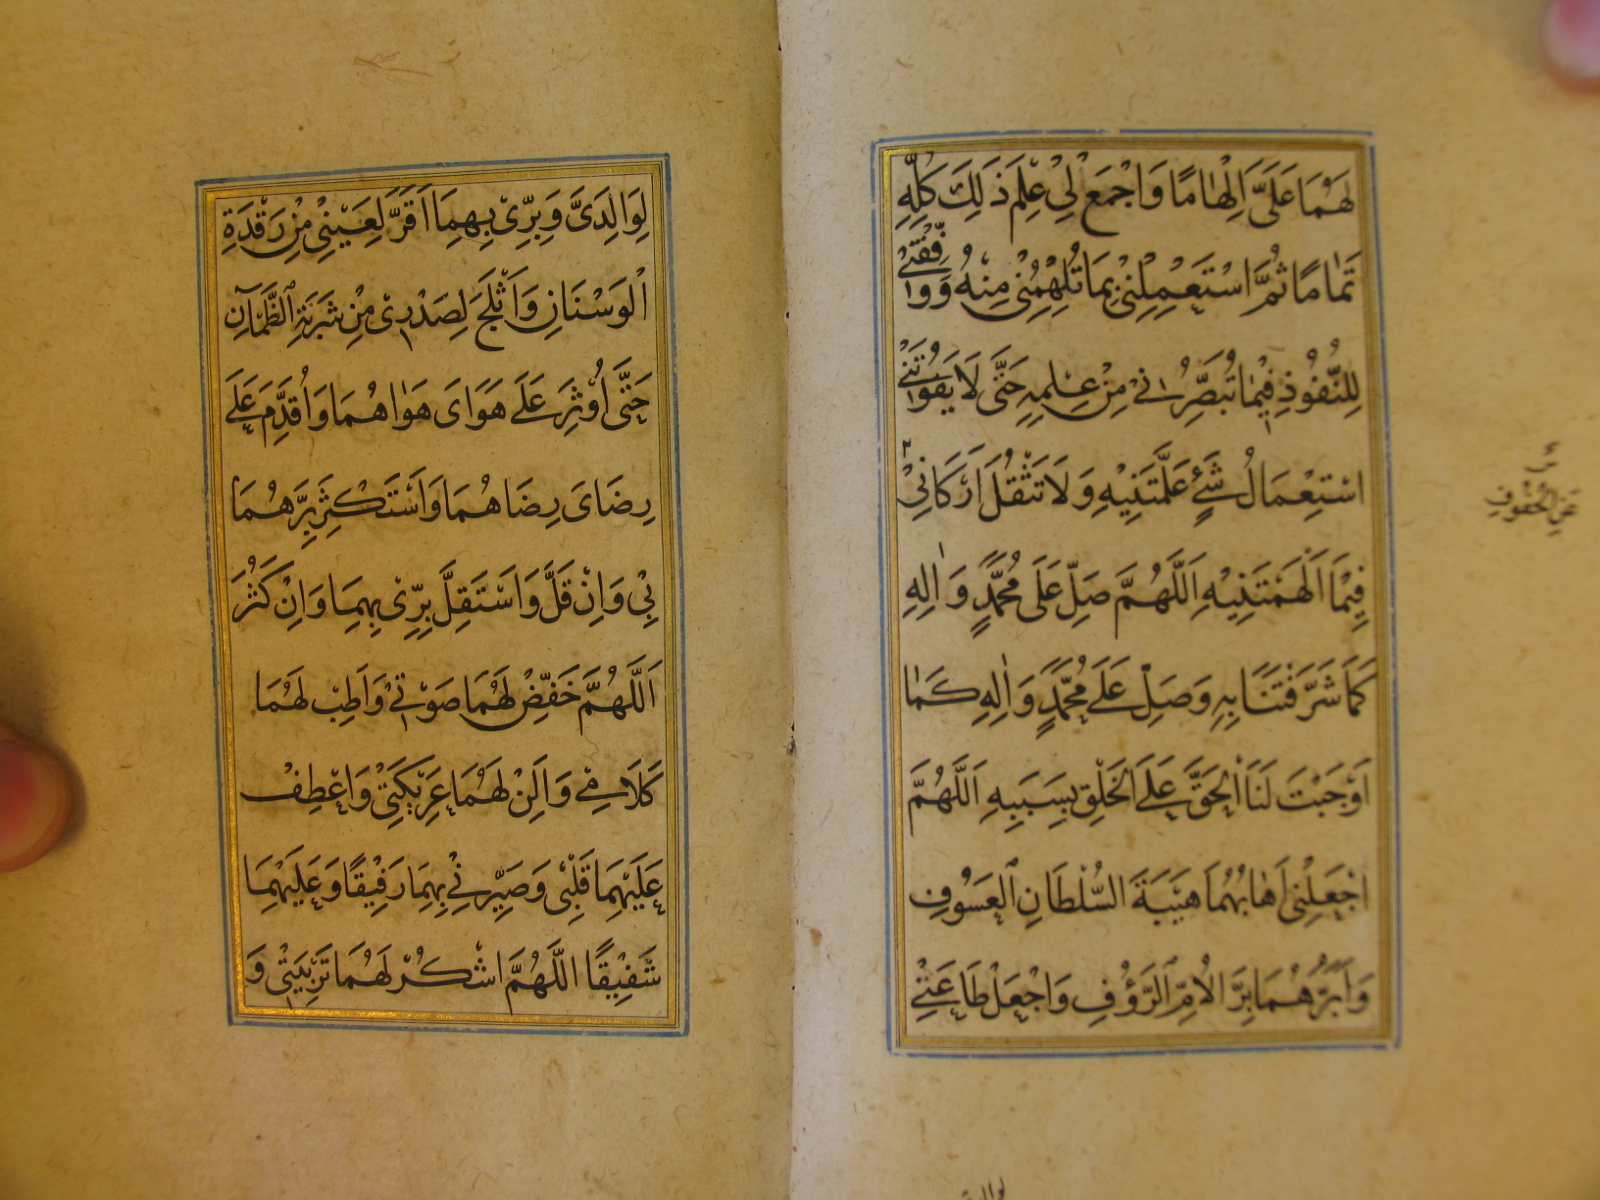 لَهُمَا عَلَيَّ اِلْهَامًا وَاجْمَعْ لِيْ عِلْمَ ذٰلِكَ كُلِّهِ
تَمَامًا ثُمَّ اسْتَعْمِلْنِيْ بِمَا تُلْهِمُنِيْ مِنْهُ وَوَفِّقْنِيْ
لِلنُّفُوْذِ فِيْمَا تُبَصِّرُنِيْ مِنْ عِلْمِهِ حَتَّى لَا يَفُوْتَنِيْ
اسْتِعْمَالُ شَيْءٍ عَلَّمْتَنِيْهِ وَلَا تَثْقُلَ اَرْكَانِيْ
عَنِ الْحُفُوْفِ
فِيْمَا اَلْهَمْتَنِيْهِ اَللّٰهُمَّ صَلِّ عَلَى مُحَمَّدٍ وَاٰلِهِ
كَمَا شَرَّفْتَنَا بِهِ وَصَلِّ عَلَى مُحَمَّدٍ وَاٰلِهِ كَمَا
اَوْجَبْتَ لَنَا الْحَقَّ عَلَى الْخَلْقِ بِسَبَبِهِ اَللّٰهُمَّ
اجْعَلْنِيْ اَهَابُهُمَا هَيْبَةَ السُّلْطَانِ الْعَسُوْفِ
وَاَبَرُّهُمَا بِرَّ الْاُمِّ الرَّؤُفِ وَاجْعَلْ طَاعَتِيْ
لِوَالِدَيَّ
لِوَالِدَيَّ وَبِرِّيْ بِهِمَا اَقَرَّ لِعَيْنِيْ مِنْ رَقْدَةِ
الْوَسْنَانِ وَاَثْلَجَ لِصَدْرِيْ مِنْ شَرْبَةِ الظَّمْاٰنِ
حَتَّى اُوْثِرَ عَلَى هَوَايَ هَوَاهُمَا وَاُقَدِّمَ عَلَى
رِضَايَ رِضَاهُمَا وَاَسْتَكْثِرَ بِرَّهُمَا
بِيْ وَاِنْ قَلَّ وَاَسْتَقِلَّ بِرِّيْ بِهِمَا وَاِنْ كَثُرَ
اَللّٰهُمَّ خَفِّضْ لَهُمَا صَوْتِيْ وَاَطِبْ لَهُمَا
كَلَامِيْ وَاَلِنْ لَهُمَا عَرِيْكَتِيْ وَاعْطِفْ
عَلَيْهِمَا قَلْبِيْ وَصَيِّرْنِيْ بِهِمَا رَفِيْقًا وَعَلَيْهِمَا
شَفِيْقًا اَللّٰهُمَّ اشْكُرْ لَهُمَا تَرْبِيَتِيْ وَ